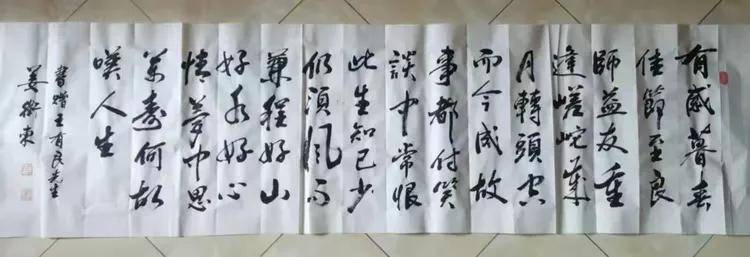 有感暮春
佳節至良
師益友重
逢蹉跎歲
月轉頭空
而今成故
事都付笑
談中常恨
此生知己少
仍須風雨
兼程好山
好水好心
情夢中思
萬壽何故
嘆人生
書贈王有良先生
姜衛東